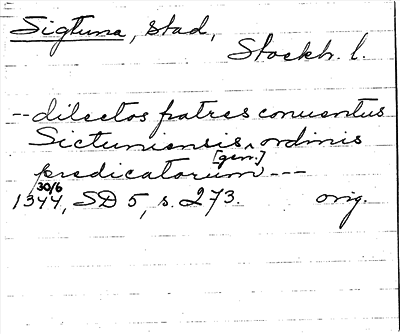 Sigtuna, stad,
Stockh. l.
--dilectos fratres conuentus
Sictuniensis ordinis
[gen.]
predicatorum ---
30/6
1344, SD 5, s. 273. orig.